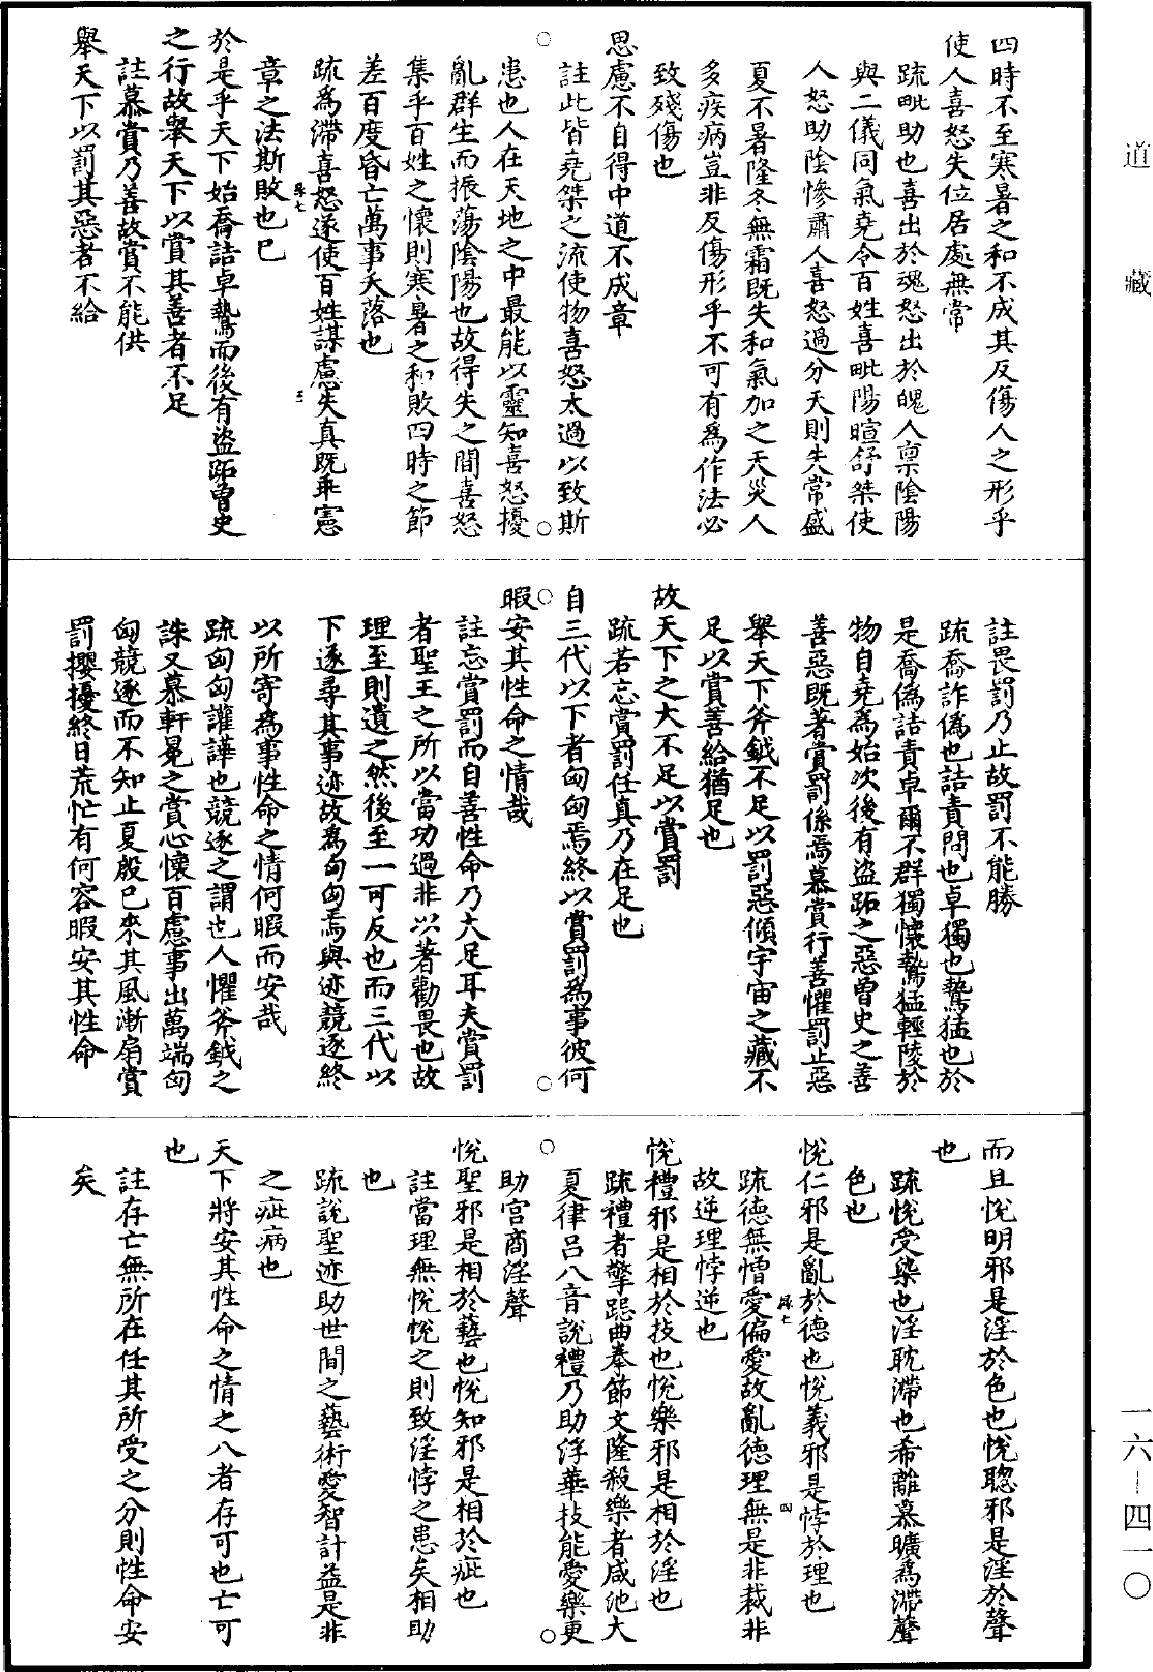 道藏
四時不至寒暑之和不成其反傷人之形乎
使人喜怒失位居處無常
疏毗助也喜出於魂怒出於魄人禀陰陽
與二儀同氣堯令百姓喜毗陽暄舒桀使
人怒助陰慘肅人喜怒過分天則失常盛
夏不暑隆冬無霜既失和氣加之天災人
多疾病豈非反傷形乎不可有爲作法必
致殘傷也
思慮不自得中道不成章
註此皆堯桀之流使物喜怒太過以致斯
患也人在天地之中最能以靈知喜怒擾
亂群生而振蕩陰陽也故得失之間喜怒
集乎百姓之懷則寒暑之和敗四時之節
差百度昏亡萬事夭落也
疏爲滯喜怒遂使百姓謀慮失真既乖憲
章之法斯敗也已
於是乎天下始喬詰卓鷙而後有盜跖曾史
之行故舉天下以賞其善者不足
註慕賞乃善故賞不能供
舉天下以罰其惡者不給
註畏罰乃止故罰不能勝
疏喬詐偽也詰責問也卓獨也鷙猛也於
是喬僞詰責卓爾不群獨懷鷙猛輕陵於
物自堯爲始次後有盜跖之惡曾史之善
善惡既著賞罰係焉慕賞行善懼罰止惡
舉天下斧鉞不足以罰惡傾宇宙之藏不
足以賞善給猶足也
故天下之大不足以賞罰
疏若忘賞罰任真乃在足也
自三代以下者匈匈焉終以賞罰爲事彼何
暇安其性命之情哉
註忘賞罰而自善性命乃大足耳夫賞罰
者聖王之所以當功過非以著勸畏也故
理至則遺之然後至一可反也而三代以
下遂尋其事迹故爲匈匈焉與迹競逐終
以所寄爲事性命之情何暇而安哉
疏匈匈讙譁也競逐之謂也人懼斧鉞之
誅又慕軒冕之賞心懷百慮事出萬端匈
匈競逐而不知止夏殷已來其風漸扇賞
罰攖擾終日荒忙有何容暇安其性命
而且悅明邪是淫於色也悅聰邪是淫於聲
也
疏悅受染也淫耽滯也希離慕曠爲滯聲
色也
悅仁邪是亂於德也悅義邪是悖於理也
疏德無憎愛偏愛故亂德理無是非裁非
故逆理悖逆也
悅禮邪是相於技也悅樂邪是相於淫也
疏禮者擎跽曲拳節文隆殺樂者咸池大
夏律呂八音說禮乃助浮華技能愛樂更
助宮商淫聲
悅聖邪是相於藝也悅知邪是相於疵也
註當理無悅悅之則致淫悖之患矣相助
也
疏說聖迹助世間之藝術愛智計益是非
之疵病也
天下將安其性命之情之八者存可也亡可
也
註存亡無所在任其所受之分則性命安
矣
一六—四一〇